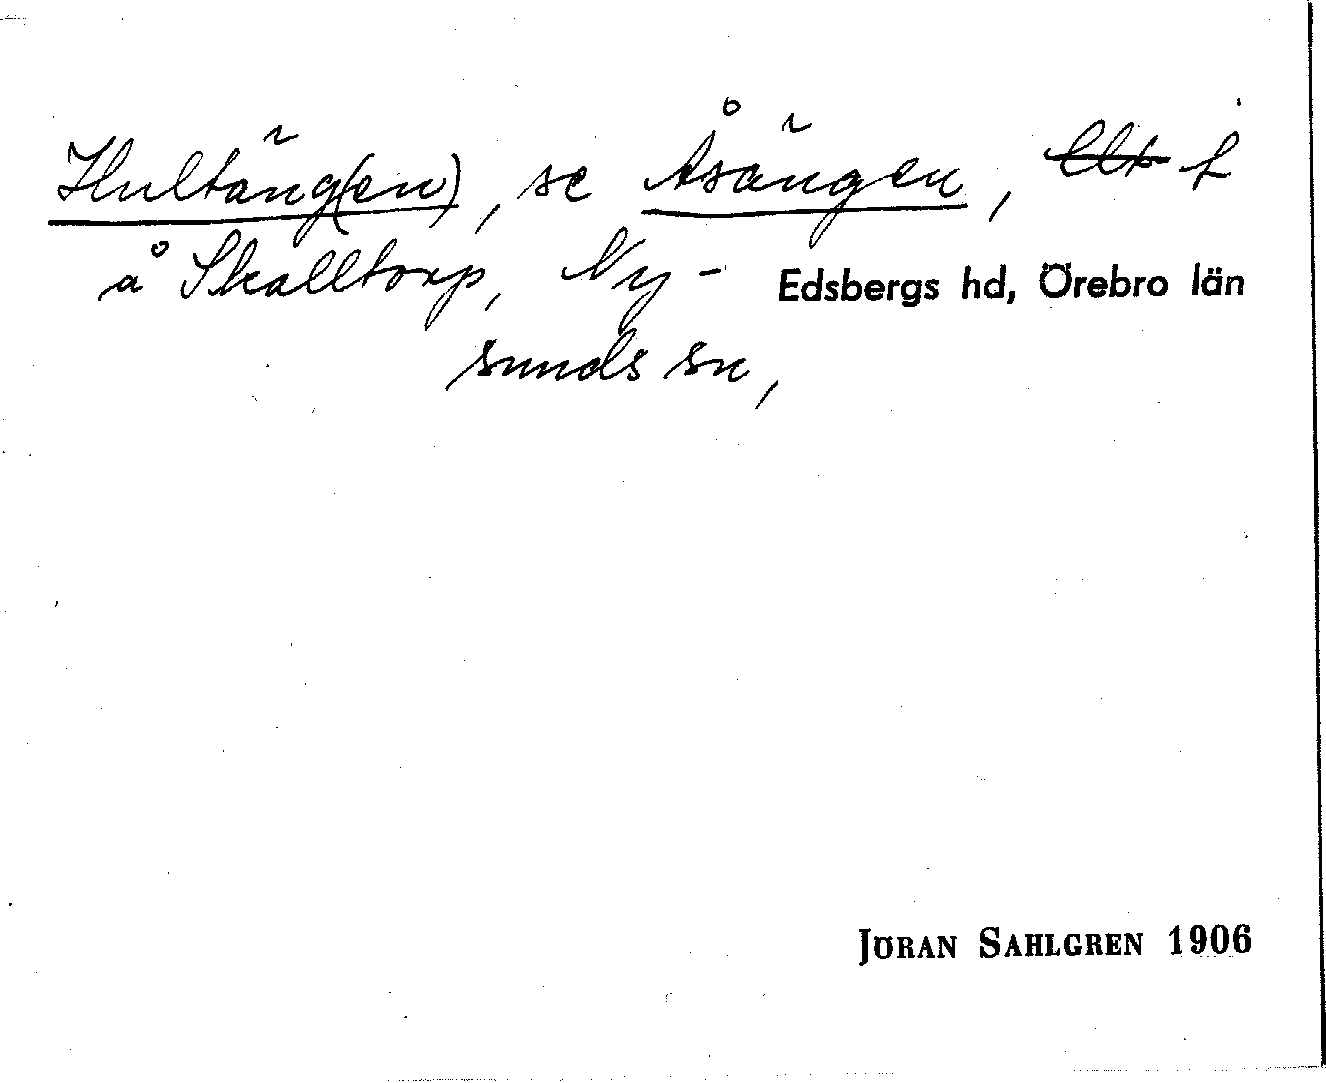 Hultäng(en), se Åsängen,
å Skalltorp, Ny- Edsbergs hd, Örebro län
sunds sn,
JÖRAN SAHLGREN 1906